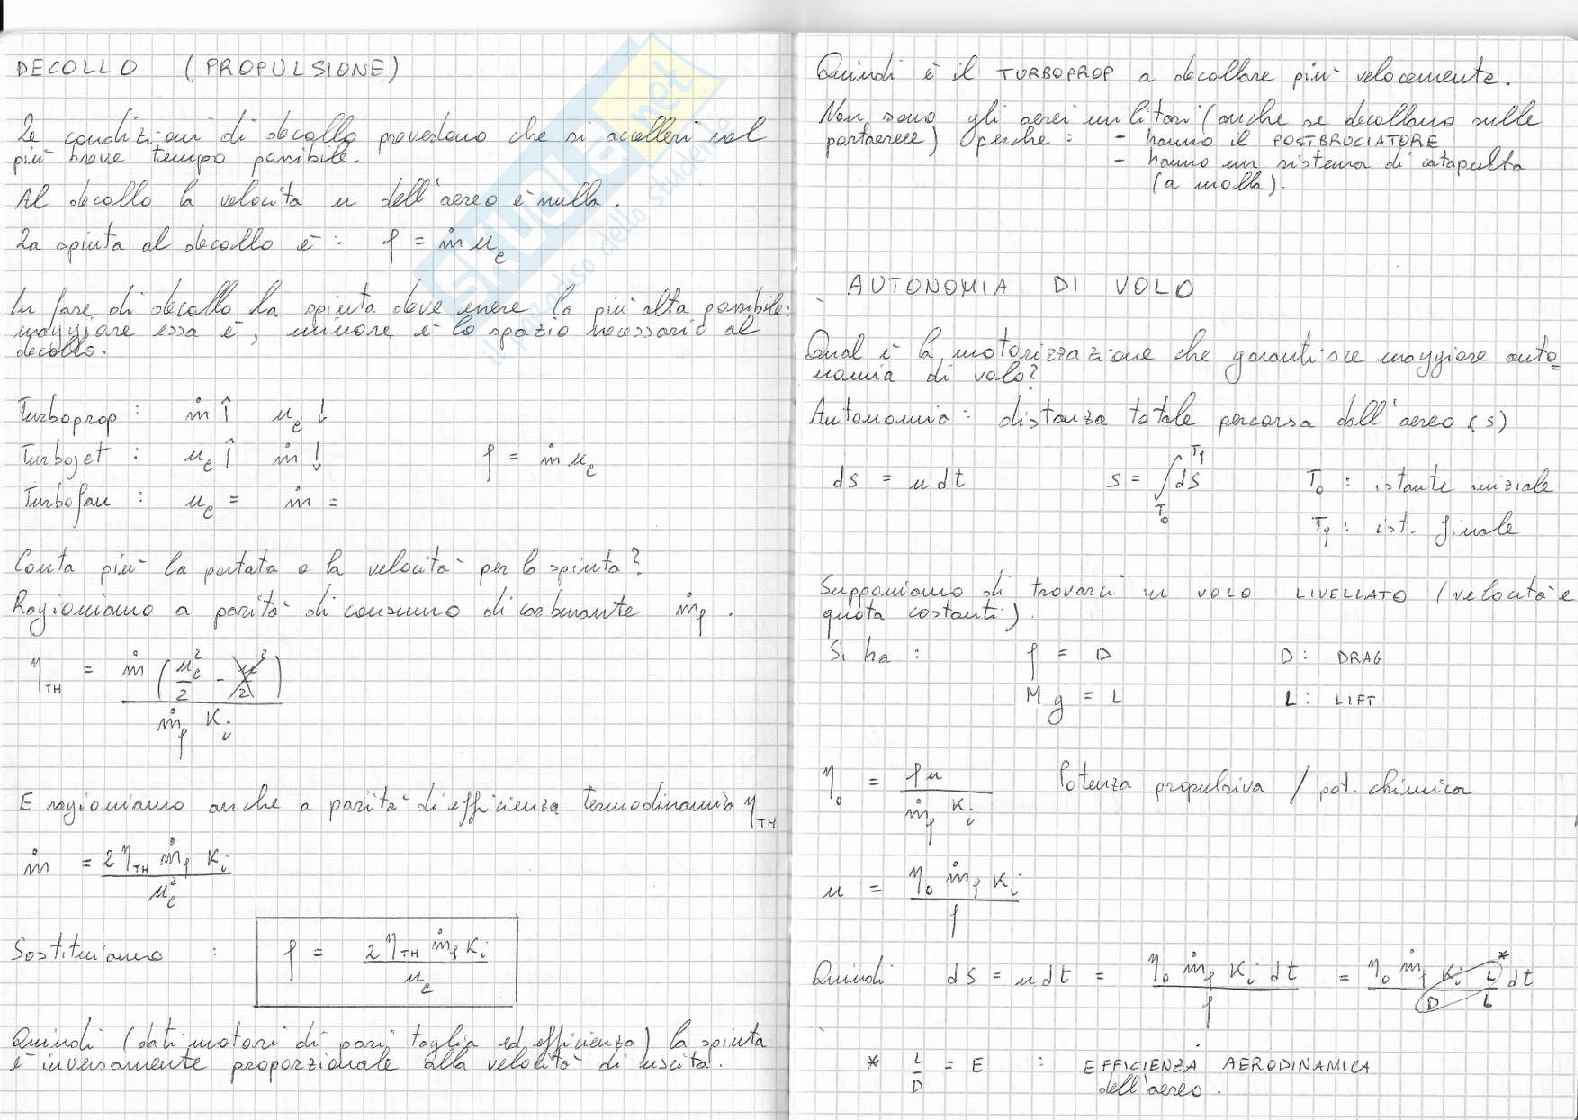 DECOLLO (PROPULSIONE)
Le condizioni di decollo prevedono che si acceleri nel
più breve tempo possibile.
Al decollo la velocità u dell'aereo è nulla.
La spinta al decollo è : f = ṁ u_e
In fase di decollo la spinta deve essere la più alta possibile:
maggiore essa è, minore è lo spazio necessario al
decollo.
Turboprop : ṁ ↑ u_e ↓
Turbojet : u_e ↑ ṁ ↓ f = ṁ u_e
Turbofan : u_e = ṁ =
Conta più la portata o la velocità per la spinta?
Ragioniamo a parità di consumo di carburante ṁ_f .
η_TH = ṁ (u_e²/2 - u²/2) / ṁ_f K_i
E ragioniamo anche a parità di efficienza termodinamica η_TH
ṁ = 2 η_TH ṁ_f K_i / u_e²
Sostituiamo : f = 2 η_TH ṁ_f K_i / u_e
Quindi (dati motori di pari taglia ed efficienza) la spinta
è inversamente proporzionale alla velocità di uscita.
Quindi è il TURBOPROP a decollare più velocemente.
Non sono gli aerei militari (anche se decollano sulle
portaerei) perché : - hanno il POSTBRUCIATORE
- hanno un sistema di catapulta
(a molla).
AUTONOMIA DI VOLO
Qual è la motorizzazione che garantisce maggiore auto-
nomia di volo?
Autonomia : distanza totale percorsa dall'aereo (s)
ds = u dt s = ∫_T₀^T_f ds T₀ : istante iniziale
T_f : ist. finale
Supponiamo di trovarci in VOLO LIVELLATO (velocità e
quota costanti).
Si ha : f = D D : DRAG
M g = L L : LIFT
η₀ = f u / ṁ_f K_i Potenza propulsiva / pot. chimica
u = η₀ ṁ_f K_i / f
Quindi ds = u dt = η₀ ṁ_f K_i dt / f = η₀ ṁ_f K_i / D L* / L dt
* L/D = E : EFFICIENZA AERODINAMICA
dell'aereo.
skuola.net